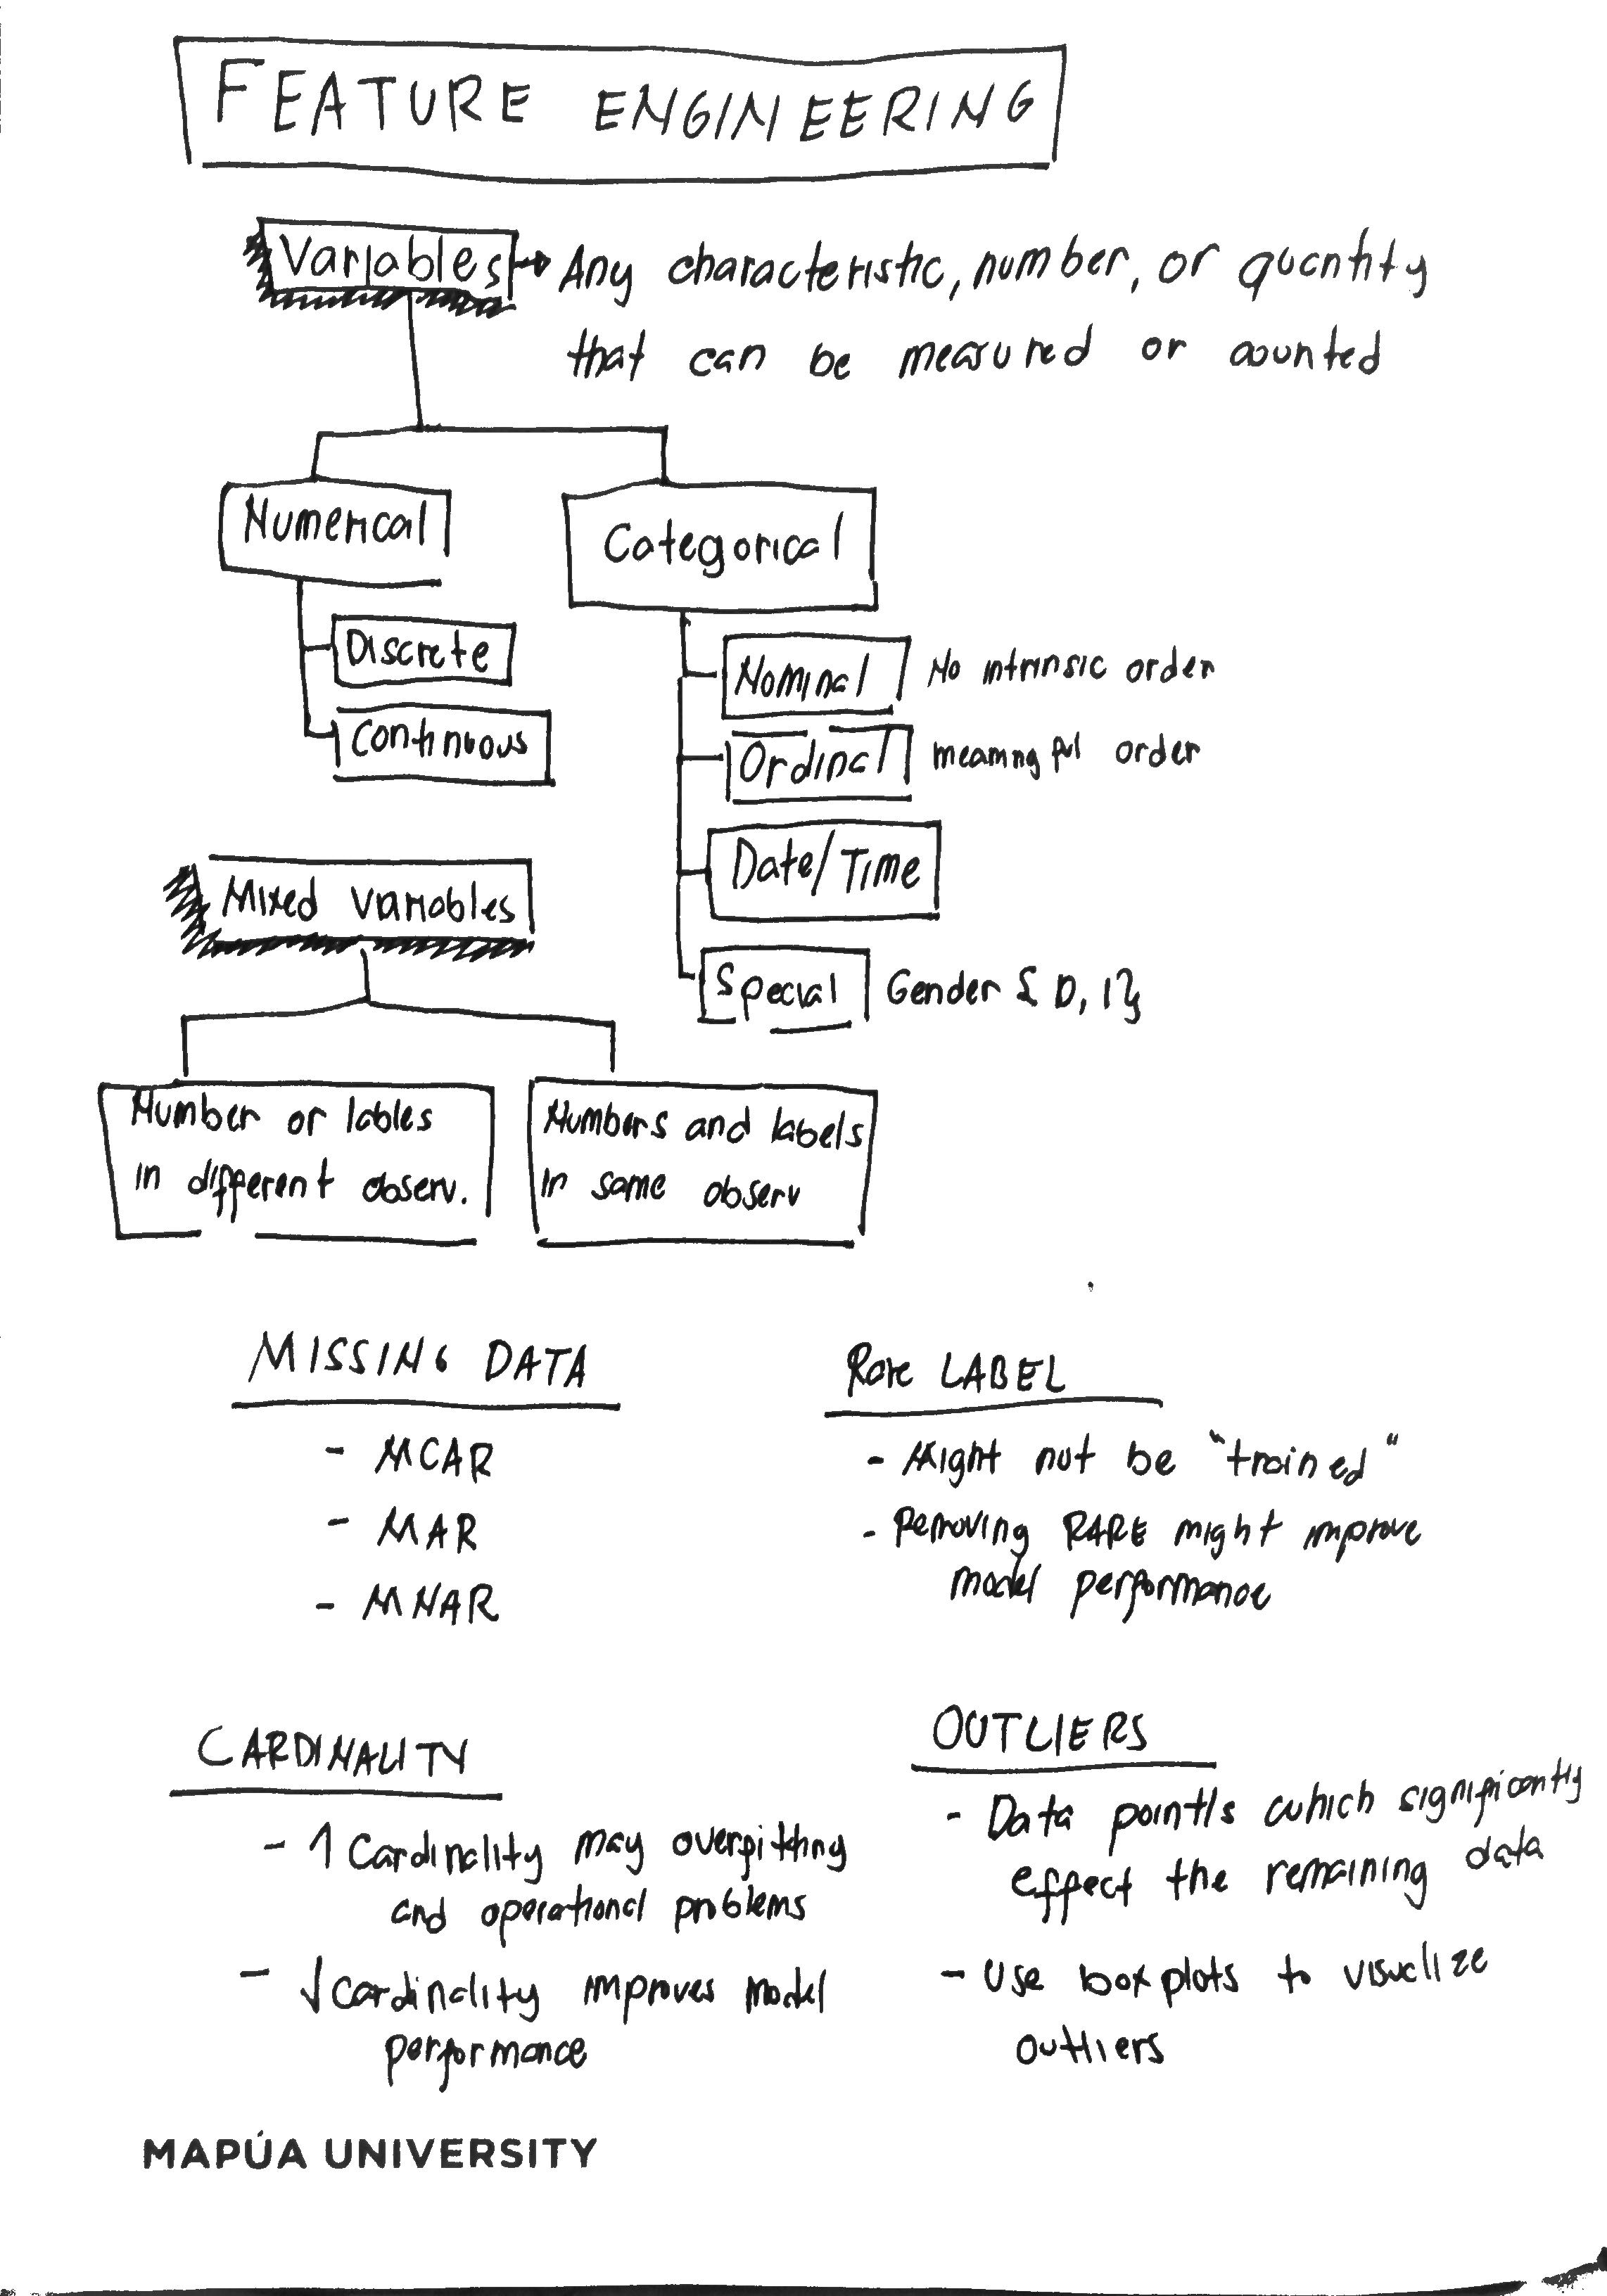 FEATURE ENGINEERING
Variables → Any characteristic, number, or quantity
that can be measured or counted
Numerical
Categorical
Discrete
Continuous
Nominal No intrinsic order
Ordinal meaningful order
Date/Time
Special Gender { 0, 1}
Mixed variables
Number or lables
in different observ.
Numbers and labels
in same observ
MISSING DATA
- MCAR
- MAR
- MNAR
Rare LABEL
- Might not be "trained"
- Removing RARE might improve
model performance
CARDINALITY
- ↑ Cardinality may overfitting
and operational problems
- ↓ Cardinality improves model
performance
OUTLIERS
- Data point/s which significantly
effect the remaining data
- Use boxplots to visualize
outliers
MAPÚA UNIVERSITY